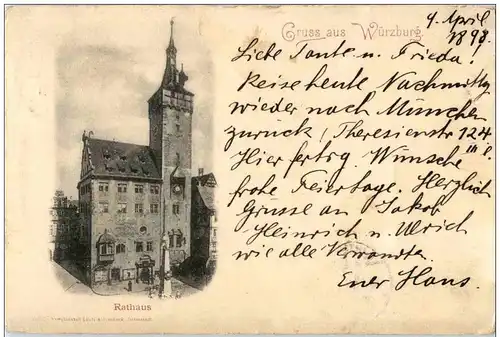 4. April
1898.
Gruss aus Würzburg.
Liebe Tante u. Frieda!
Reise heute Nachmittg
wieder nach München
zurück, Theresienstr 124
III l.
Hier fertig. Wünsche
frohe Feiertage. Herzlich
Grüsse an Jakob
Heinrich u. Ulrich
wie alle Verwandte.
Euer Hans.
Rathaus